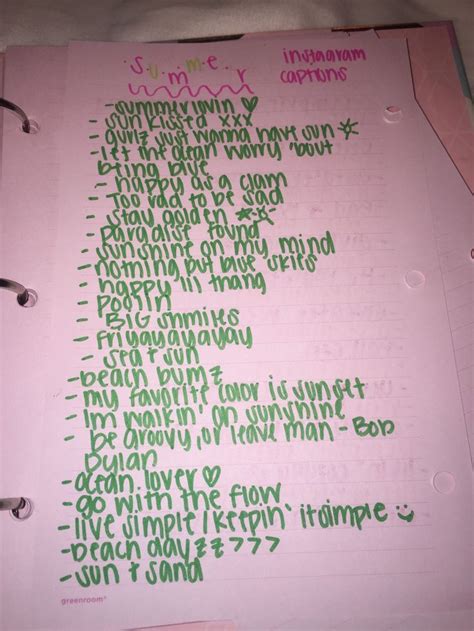 summer instagram captions
- summer lovin ♡
- sun kissed xxx
- gurlz just wanna have sun ☀
- let the ocean worry 'bout
being blue
- happy as a clam
- Too rad to be sad
- stay golden ☀☀
- paradise found
- sunshine on my mind
- nothing but blue skies
- happy lil thang
- poolin
- BIG shmiles
- friyayayayay
- sea + sun
- beach bumz
- my favorite color is sunset
- Im walkin' on sunshine
- be groovy, or leave man - Bob
Dylan
- ocean lover ♡
- go with the flow
- live simple / keepin' it simple ☺
- beach dayzz >>>>
- sun + sand
greenroom®